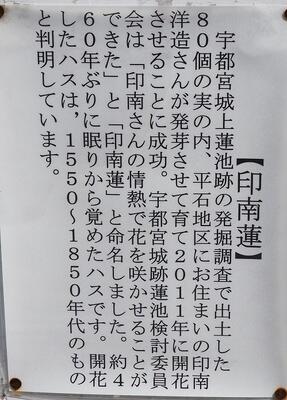 【印南蓮】
宇都宮城上蓮池跡の発掘調査で出土した
80個の実の内、平石地区にお住まいの印南
洋造さんが発芽させて育て2011年に開花
させることに成功。宇都宮城跡蓮池検討委員
会は「印南さんの情熱で花を咲かせることが
できた」と「印南蓮」と命名しました。約4
60年ぶりに眠りから覚めたハスです。開花
したハスは、1550~1850年代のもの
と判明しています。